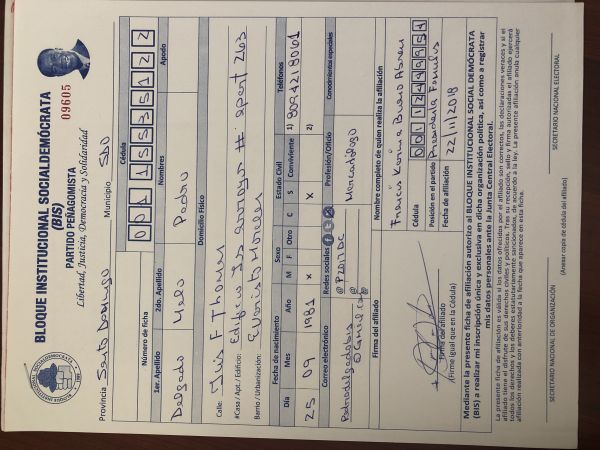 BLOQUE INSTITUCIONAL SOCIALDEMÓCRATA
(BIS)
PARTIDO PEÑAGOMISTA
Libertad, Justicia, Democracia y Solidaridad
09605
BLOQUE INSTITUCIONAL SOCIALDEMOCRATA
Provincia Santo Domingo Municipio
Número de ficha Cédula
1er. Apellido 2do. Apellido Nombres Apodo
Delgado Melo Pedro
Domicilio Físico
Calle: Luis F Thomen
#Casa / Apt. / Edificio: Edificio apart 2163
Barrio / Urbanización: Evaristo Morales
Fecha de nacimiento Sexo Estado Civil Teléfonos
Día Mes Año M F Otro C S Conviviente 1) 8094218061
25 09 1981 x x 2)
Correo electrónico Redes sociales Profesión/Oficio Conocimientos especiales
@P2017DC Mercadologo
Firma del afiliado Nombre completo de quien realiza la afiliación
Francis Karina Bueno Abreu
Cédula
Posición en el partido Presidenta
Fecha de afiliación 22/11/2018
Firma del afiliado
(Firma igual que en la Cédula)
Mediante la presente ficha de afiliación autorizo al BLOQUE INSTITUCIONAL SOCIAL DEMÓCRATA
(BIS) a realizar mi inscripción única y exclusiva en dicha organización política, así como a registrar
mis datos personales ante la Junta Central Electoral.
La presente ficha de afiliación es válida si los datos ofrecidos por el afiliado son correctos, las declaraciones veraces y si el
afiliado tiene el disfrute de sus derechos civiles y políticos. Tras su recepción, sello y firma autorizadas el afiliado ejercerá
todos los derechos y los deberes estatutariamente sancionados, de acuerdo a la ley. La presente afiliación anula cualquier
afiliación realizada con anterioridad a la fecha que aparece en esta ficha.
SECRETARIO NACIONAL DE ORGANIZACIÓN SECRETARIO NACIONAL ELECTORAL
(Anexar copia de cédula del afiliado)